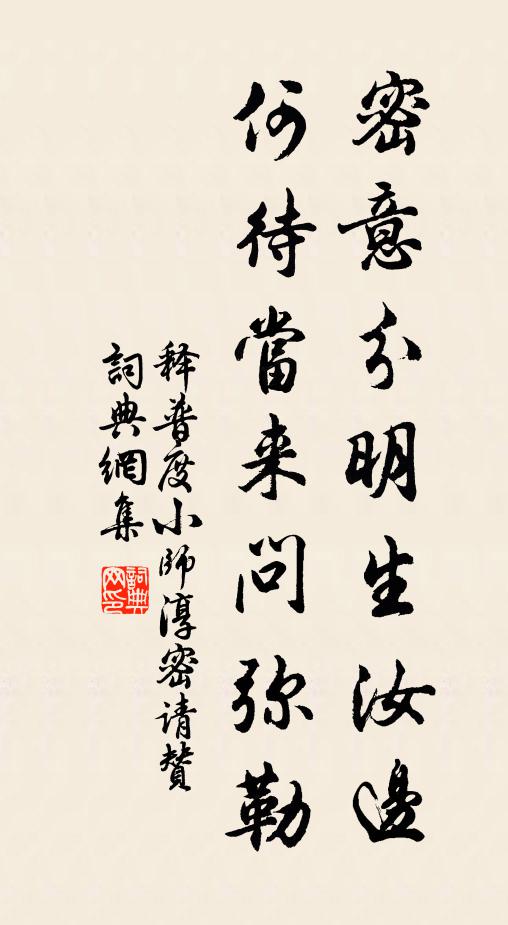 密意分明生汝邊
何待當来問弥勒
释普度小師淳密请贊
詞典網集
詞典网印